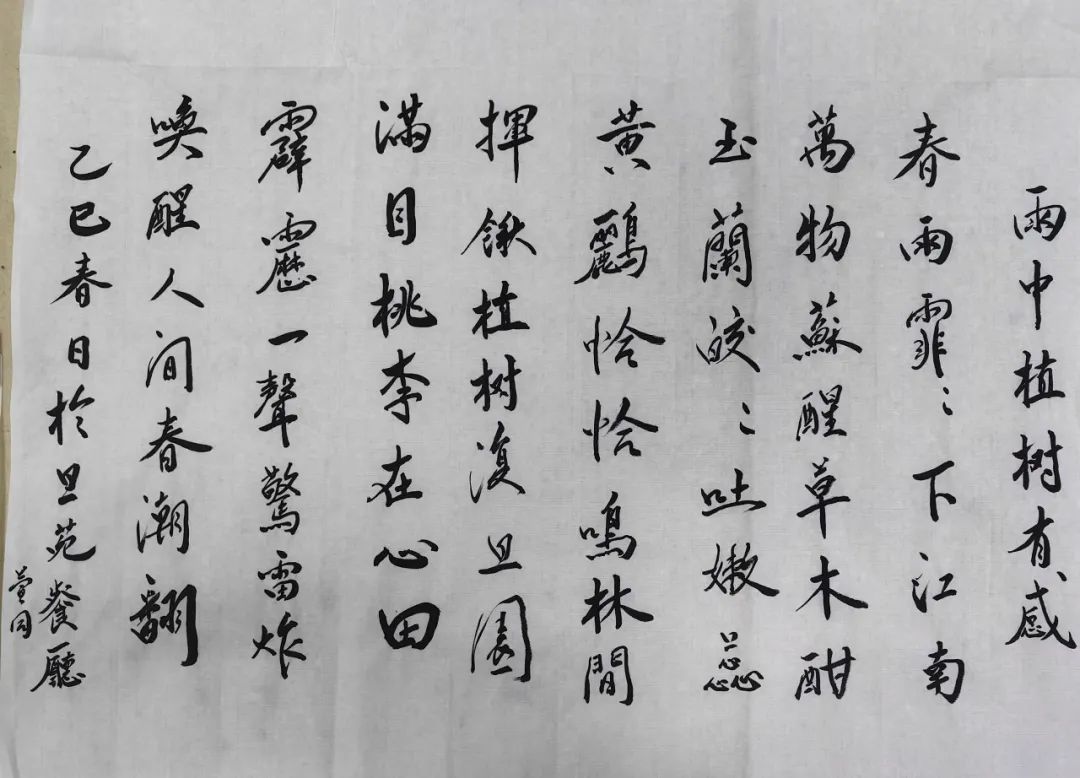 雨中植树有感
春雨霏〻下江南
萬物蘇醒草木酣
玉蘭皎〻吐嫩蕊
黄鸝恰恰鳴林間
揮鍬植树復旦園
满目桃李在心田
霹靂一聲驚雷炸
喚醒人间春潮翻
乙巳春日於旦苑餐廳